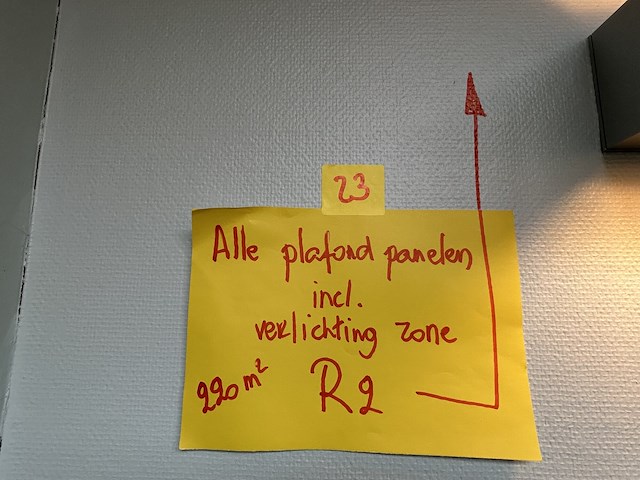 23
Alle plafond panelen
incl.
verlichting zone
220 m² R2